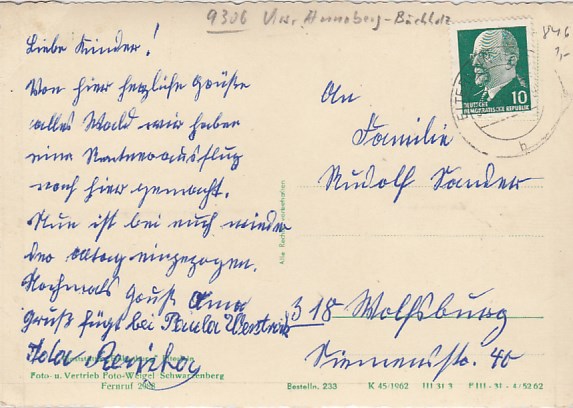 9306 Annaberg-Buchholz
Liebe Kinder!
Von hier herzliche Grüße
alles Wald wir haben
eine
noch hier gemacht.
Nun ist bei euch wieder
der alltag eingezogen.
Nochmals Gruß Oma
Gruß fügt bei Paula
Ida
An
Familie
Rudolf Sander
318 Wolfsburg
Siemensstr. 40
10
DEUTSCHE
DEMOKRATISCHE REPUBLIK
b
Alle Rechte vorbehalten
Foto- u. Vertrieb Foto-Weigel Schwarzenberg
Fernruf
Bestelln. 233 K 45/1962 III 31 3